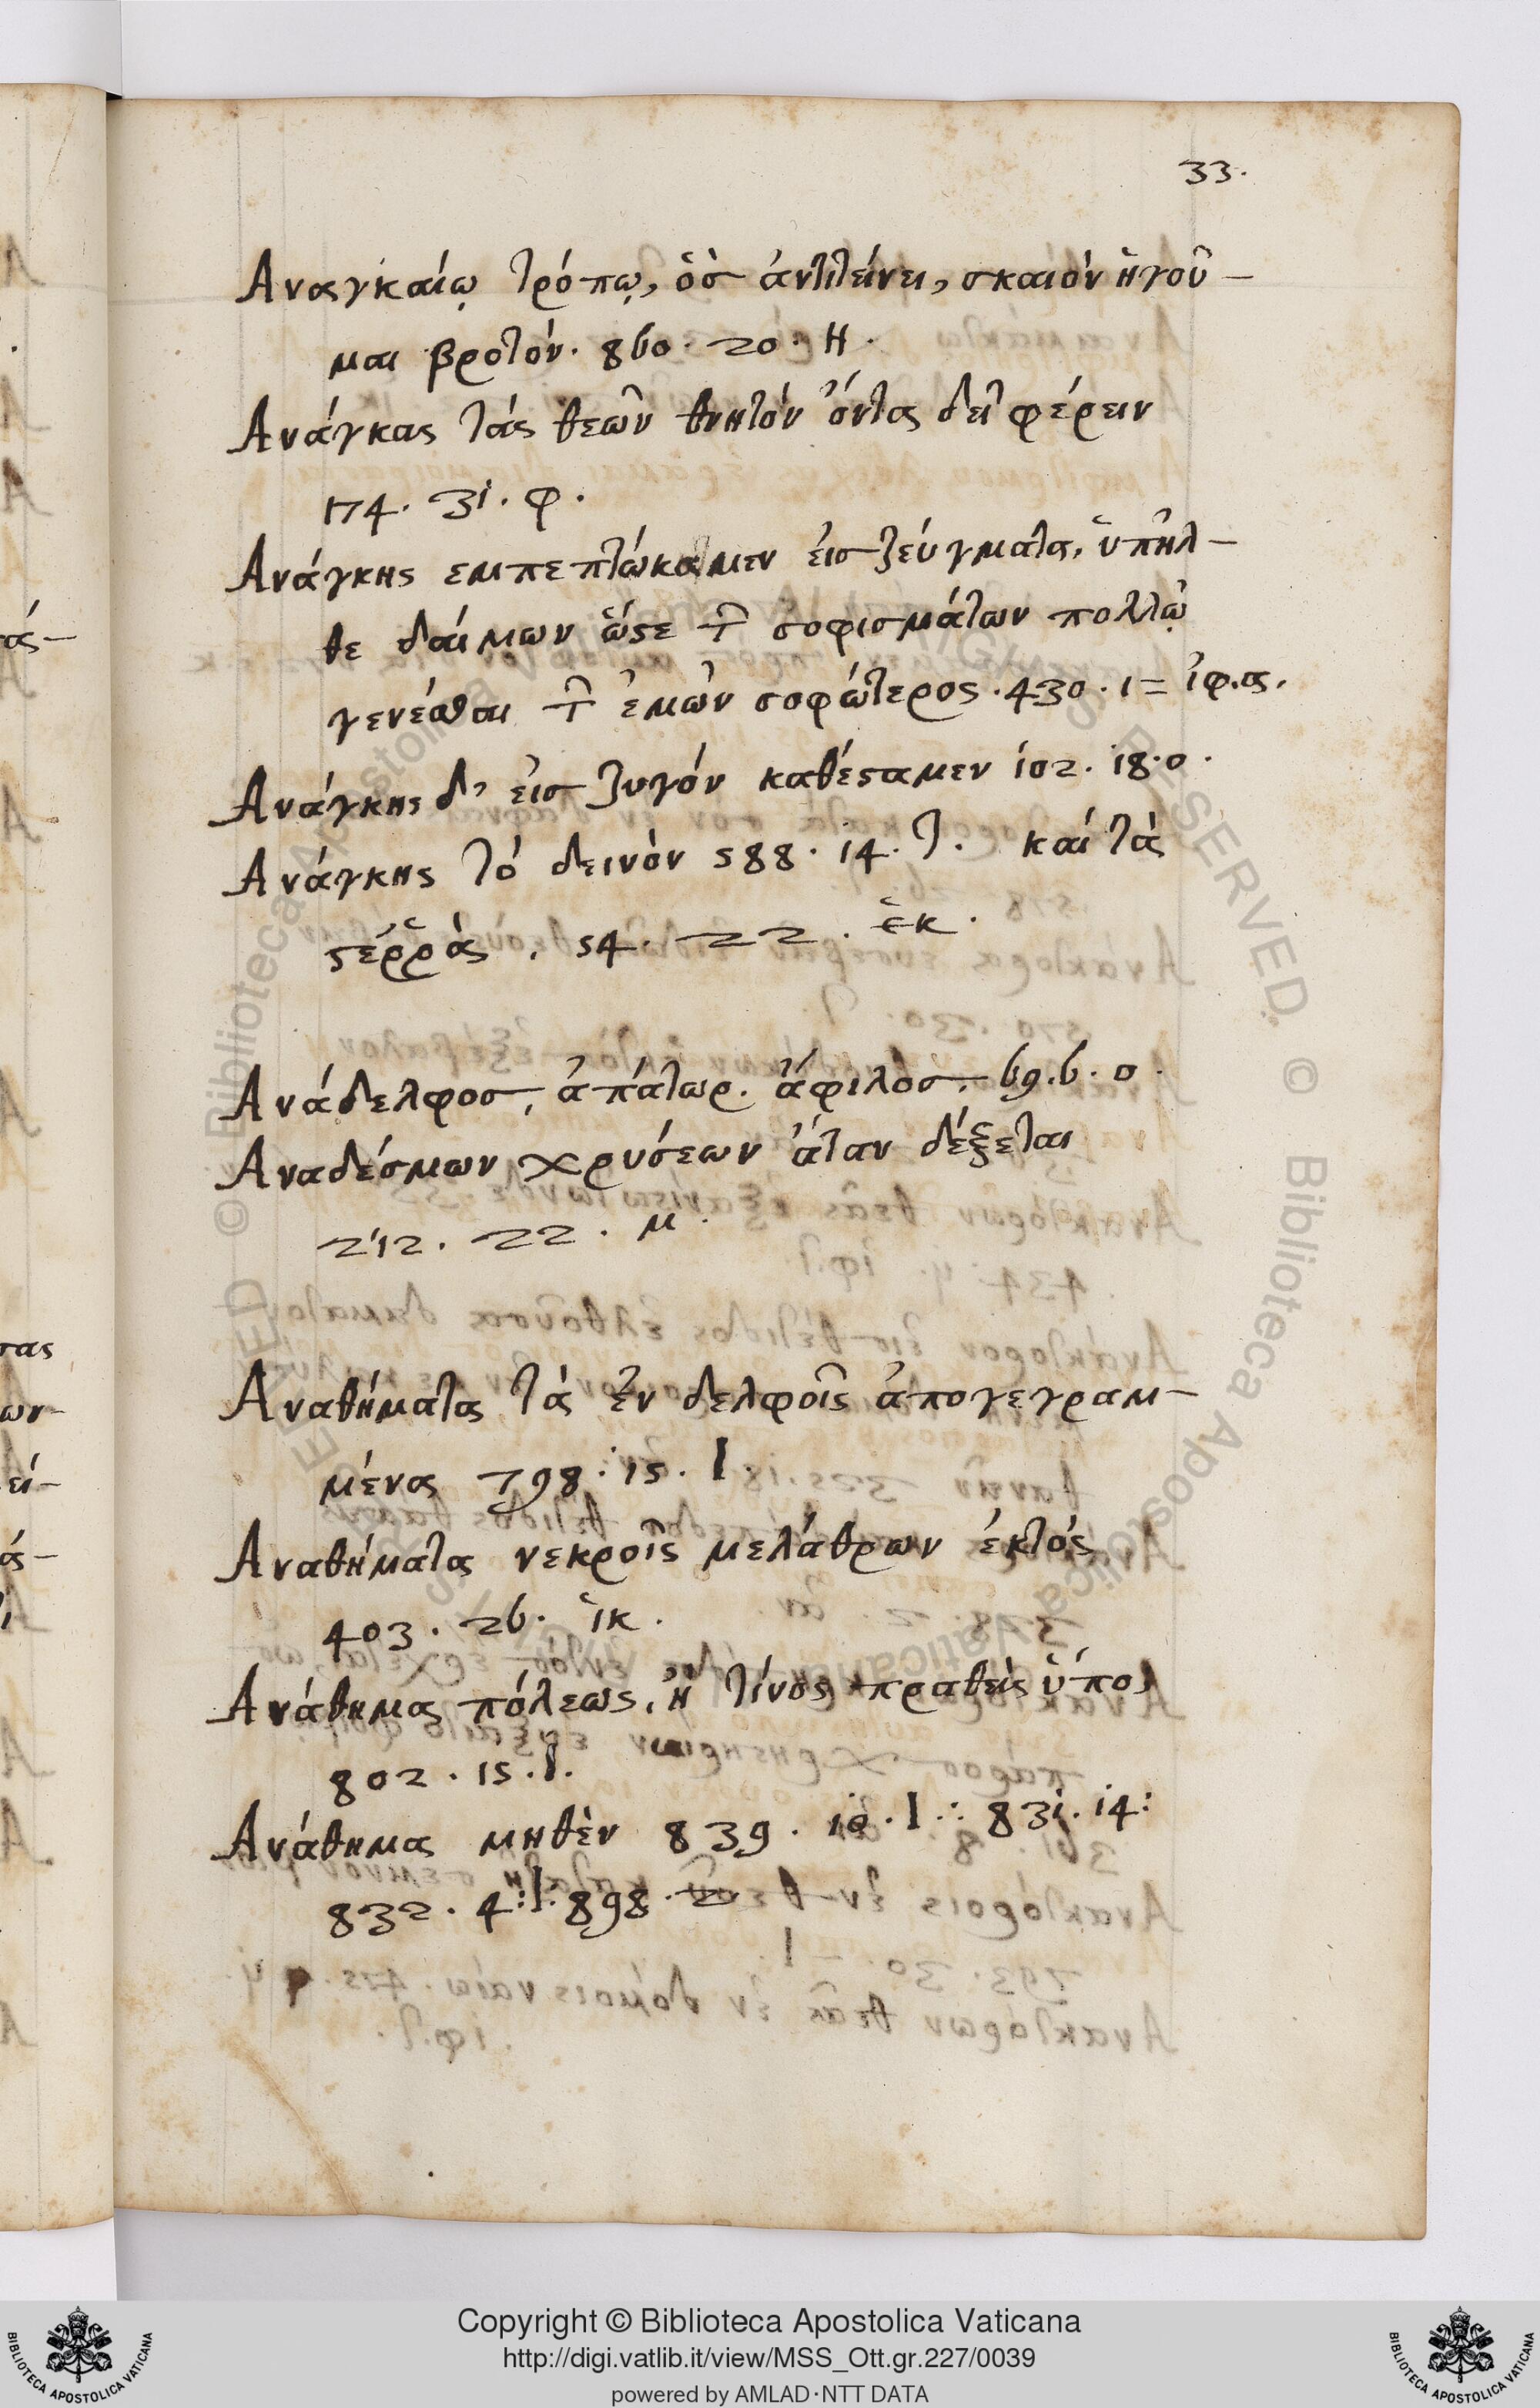 33.
Αναγκαίῳ τρόπῳ, ὃσ ἀντιτείνει, σκαιὸν ἡγοῦ-
μαι βροτόν. 860. 20. Η.
Ανάγκας τάς θεῶν θνητόν ὄντας δεῖ φέρειν
174. 31. φ.
Ανάγκης εμπεπτώκαμεν ἐισ ζεύγματα, ὑπῆλ-
θε δαίμων ὥϛε τ῀ σοφισμάτων πολλῷ
γενέσθαι τ῀ ἐμῶν σοφώτερος. 430. 1= ἰφ.α.
Ανάγκης δ' ἐισ ζυγόν καθέϛαμεν 102. 18. ο.
Ανάγκης τό δεινὸν 588. 14. Ι. καί τὰ
ϛέῤῥὰ. 54. 22. ἑκ.
Ανάδελφοσ, ἀπάτωρ. ἄφιλοσ. 69. 6. ο.
Αναδέσμων χρυσέων ἄταν δέξεται
212. 22. μ.
Αναθήματα τὰ ἐν δελφοῖς ἀπογεγραμ-
μένα 798: 15. Ι.
Αναθήματα νεκροῖς μελάθρων ἐκτός
403. 26. ἱκ.
Ανάθημα πόλεως, ἢ τίνος πραθεὶς ὕπο,
802. 15. Ι.
Ανάθημα μηθὲν 839. 10. Ι ∴ 831. 14:
832. 4: Ι: 898. 2
Copyright © Biblioteca Apostolica Vaticana
http://digi.vatlib.it/view/MSS_Ott.gr.227/0039
powered by AMLAD·NTT DATA
BIBLIOTECA APOSTOLICA VATICANA
BIBLIOTECA APOSTOLICA VATICANA